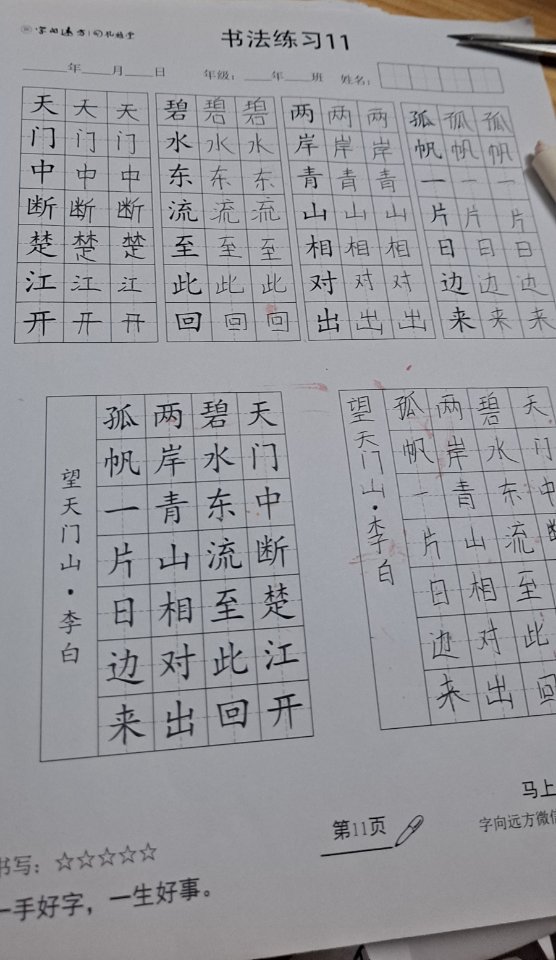 字向远方
书法练习11
____年____月____日 年级：____年____班 姓名：
天 天 天 碧 碧 碧 两 两 两 孤 孤 孤
门 门 门 水 水 水 岸 岸 岸 帆 帆 帆
中 中 中 东 东 东 青 青 青 一 一 一
断 断 断 流 流 流 山 山 山 片 片 片
楚 楚 楚 至 至 至 相 相 相 日 日 日
江 江 江 此 此 此 对 对 对 边 边 边
开 开 开 回 回 回 出 出 出 来 来 来
天门中断楚江开
碧水东流至此回
两岸青山相对出
孤帆一片日边来
望天门山·李白
天门中
碧水东流至此回
两岸青山相对出
孤帆一片日边来
望天门山·李白
马上
第11页
字向远方微信
书写：☆☆☆☆☆
一手好字，一生好事。